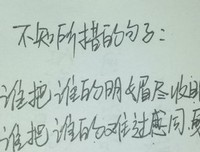 不知所措的句子:
谁把谁的明媚尽收眼
谁把谁的难过感同身